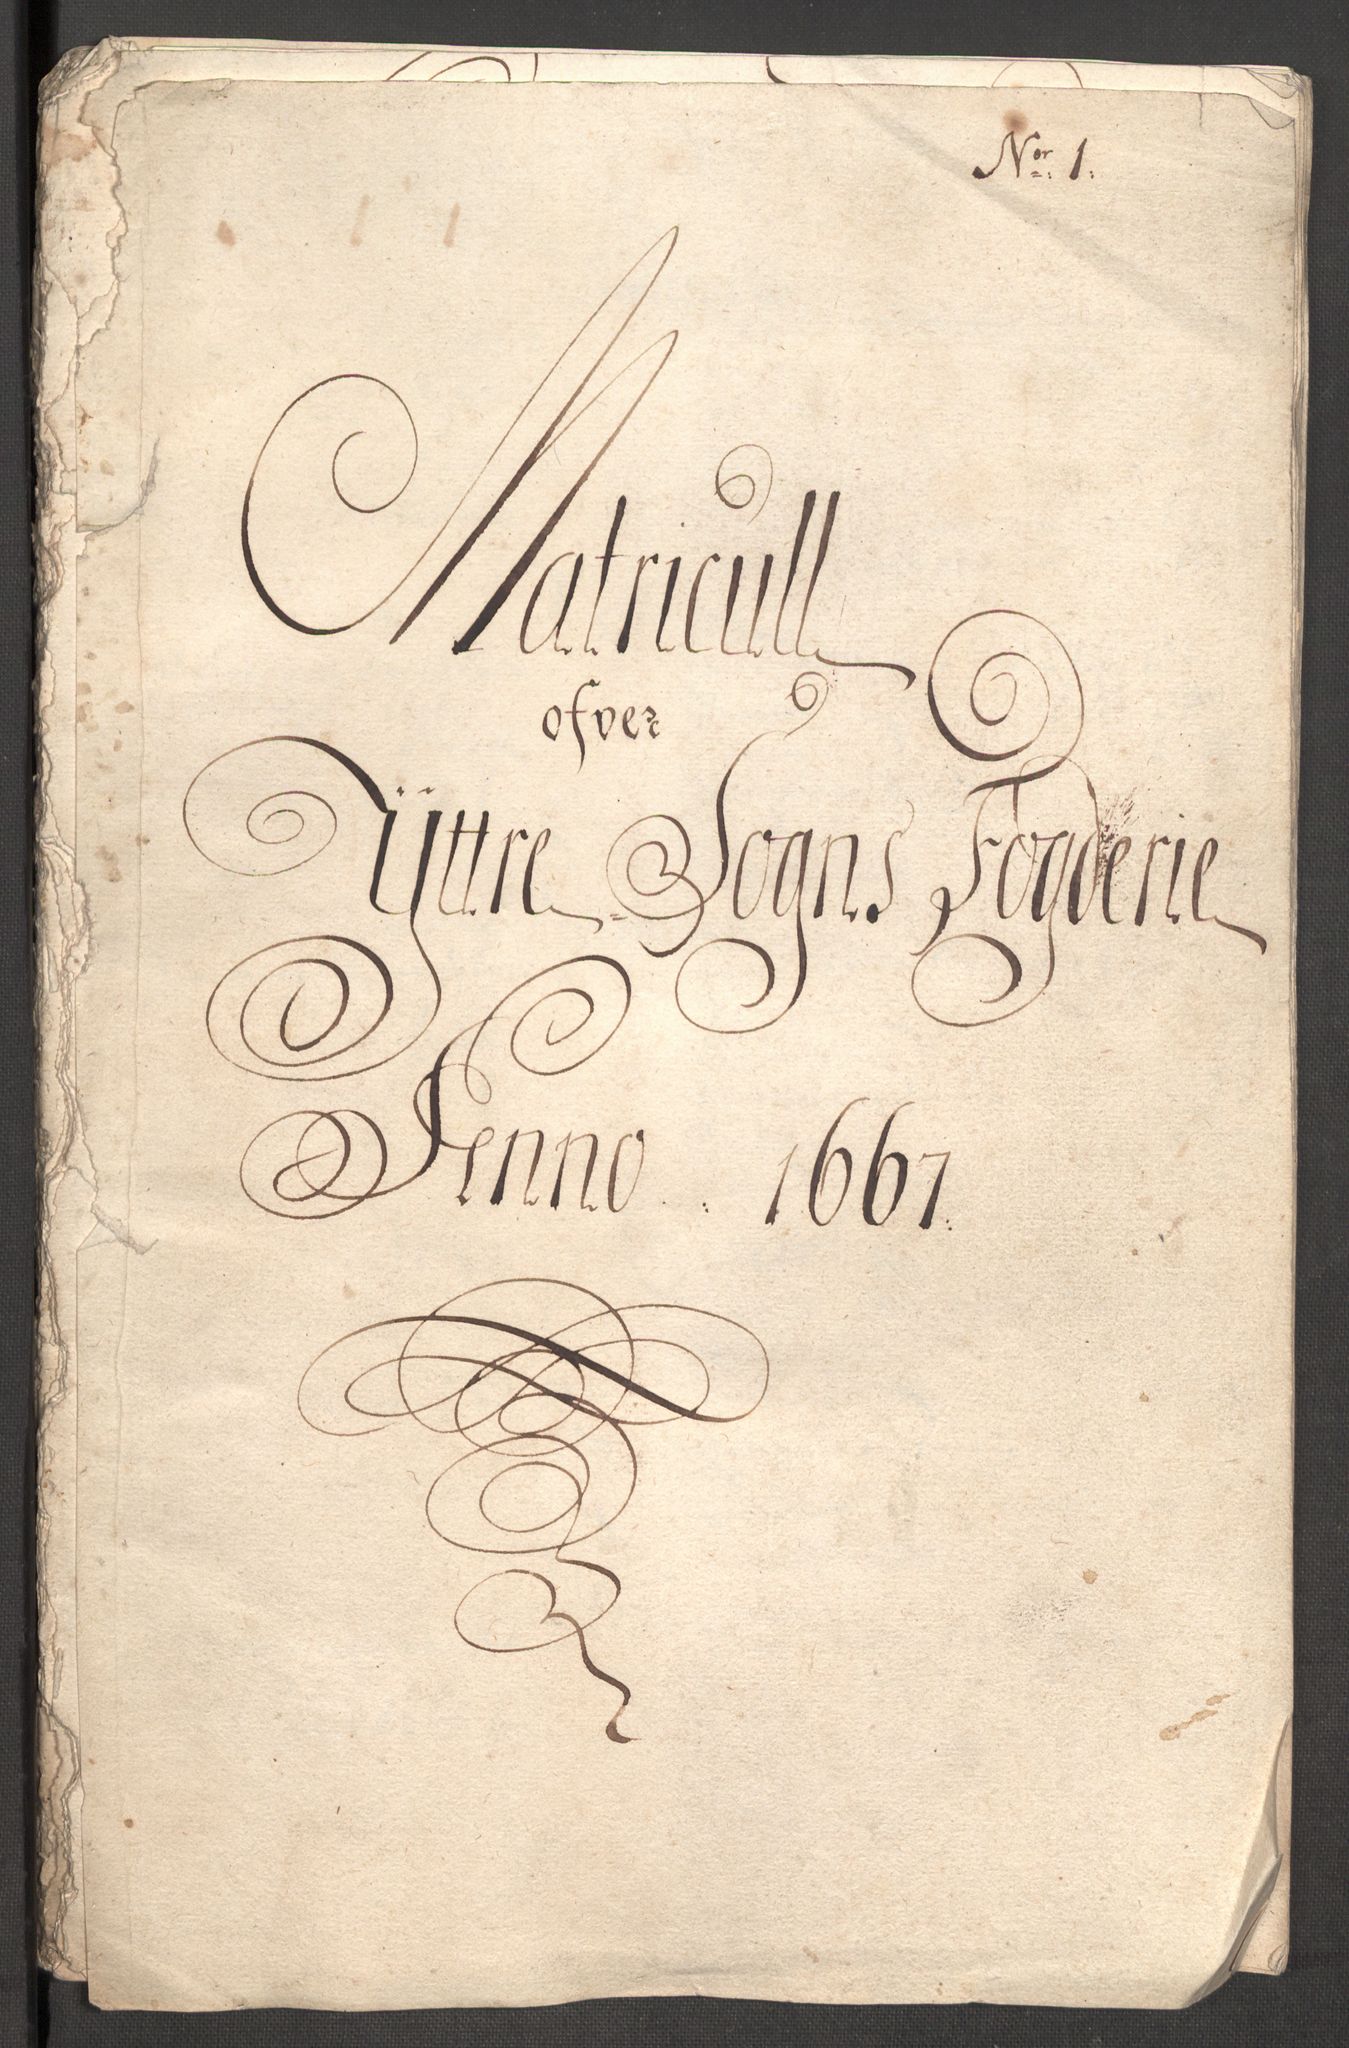 Nor. 1.
Matricull
ofver
Ÿttre Sogns Fogderie
Anno 1667.